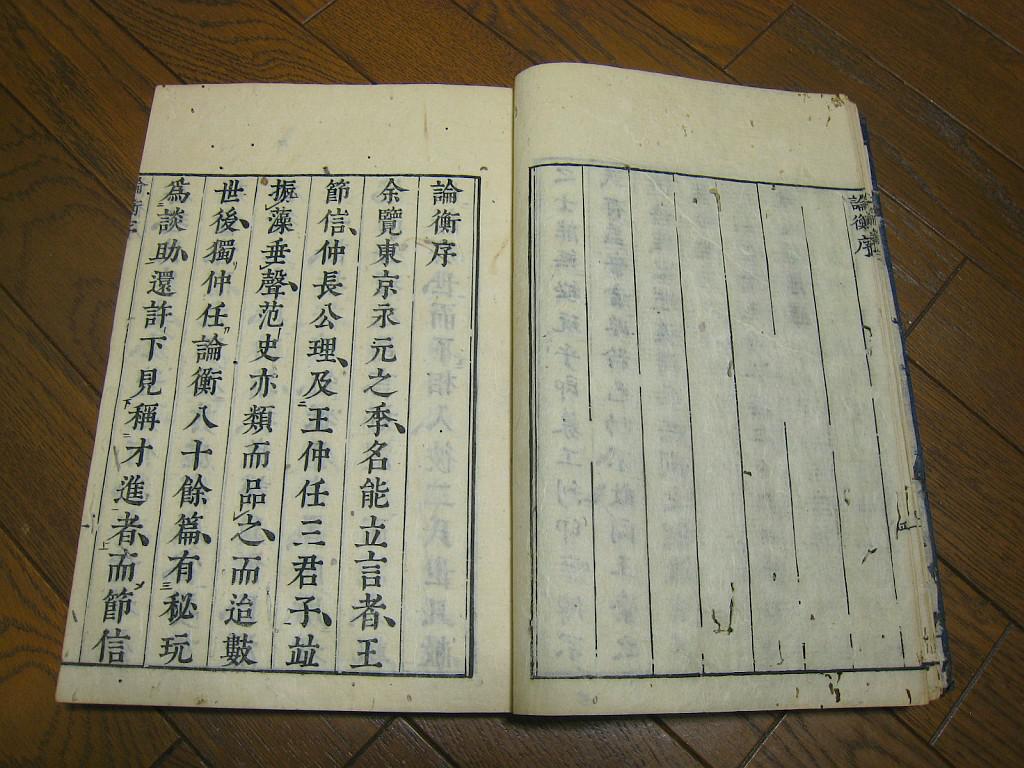 論衡序
論衡序
余覽東京永元之季名能立言者王
節信仲長公理及王仲任三君子竝
振藻垂聲范史亦類而品之而迨數
世後獨仲任論衡八十餘篇有秘玩
爲談助還許下見稱才進者而節信